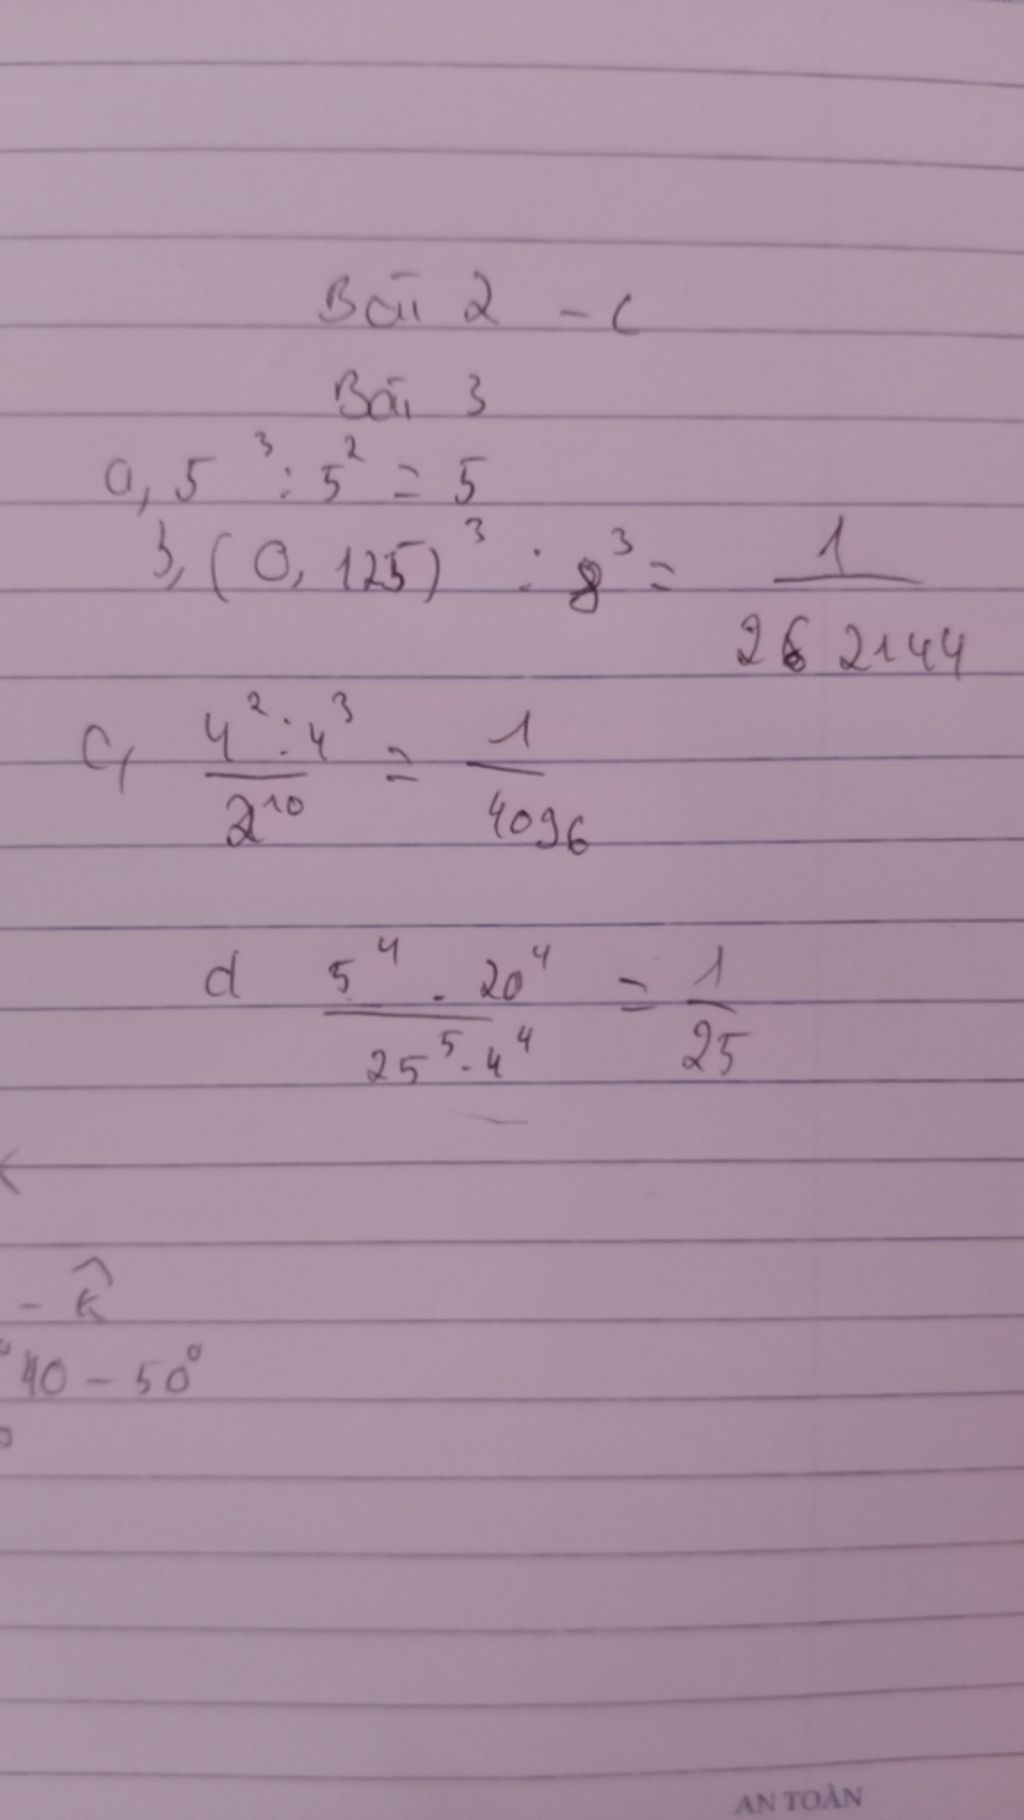 Bài 2 - C
Bài 3
a, 5³ : 5² = 5
b, (0,125)³ : 8³ = 1/262144
c, 4² : 4³ / 2¹⁰ = 1/4096
d 5⁴ . 20⁴ / 25⁵ . 4⁴ = 1/25
- K̂
40 - 50°
AN TOÀN